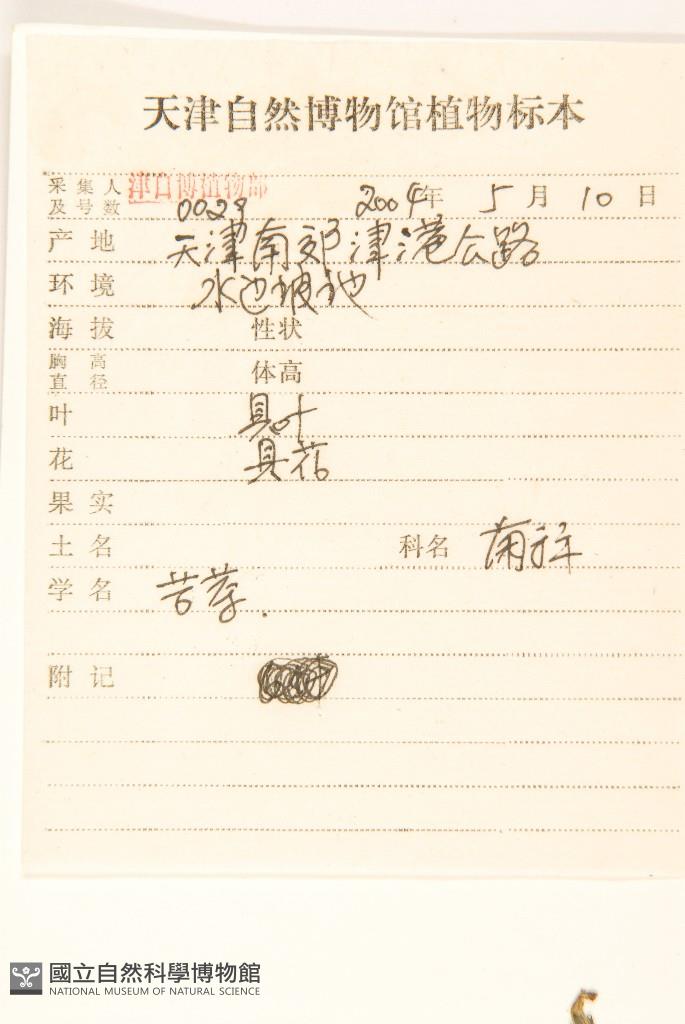 天津自然博物馆植物标本
采集人 津自博植物部
及号数 0023 2004年 5月 10日
产地 天津南郊津港公路
环境 水边坡地
海拔 性状
胸高
直径 体高
叶 具叶
花 具花
果实
土名 科名 菊科
学名 苦荬.
附记
國立自然科學博物館
NATIONAL MUSEUM OF NATURAL SCIENCE